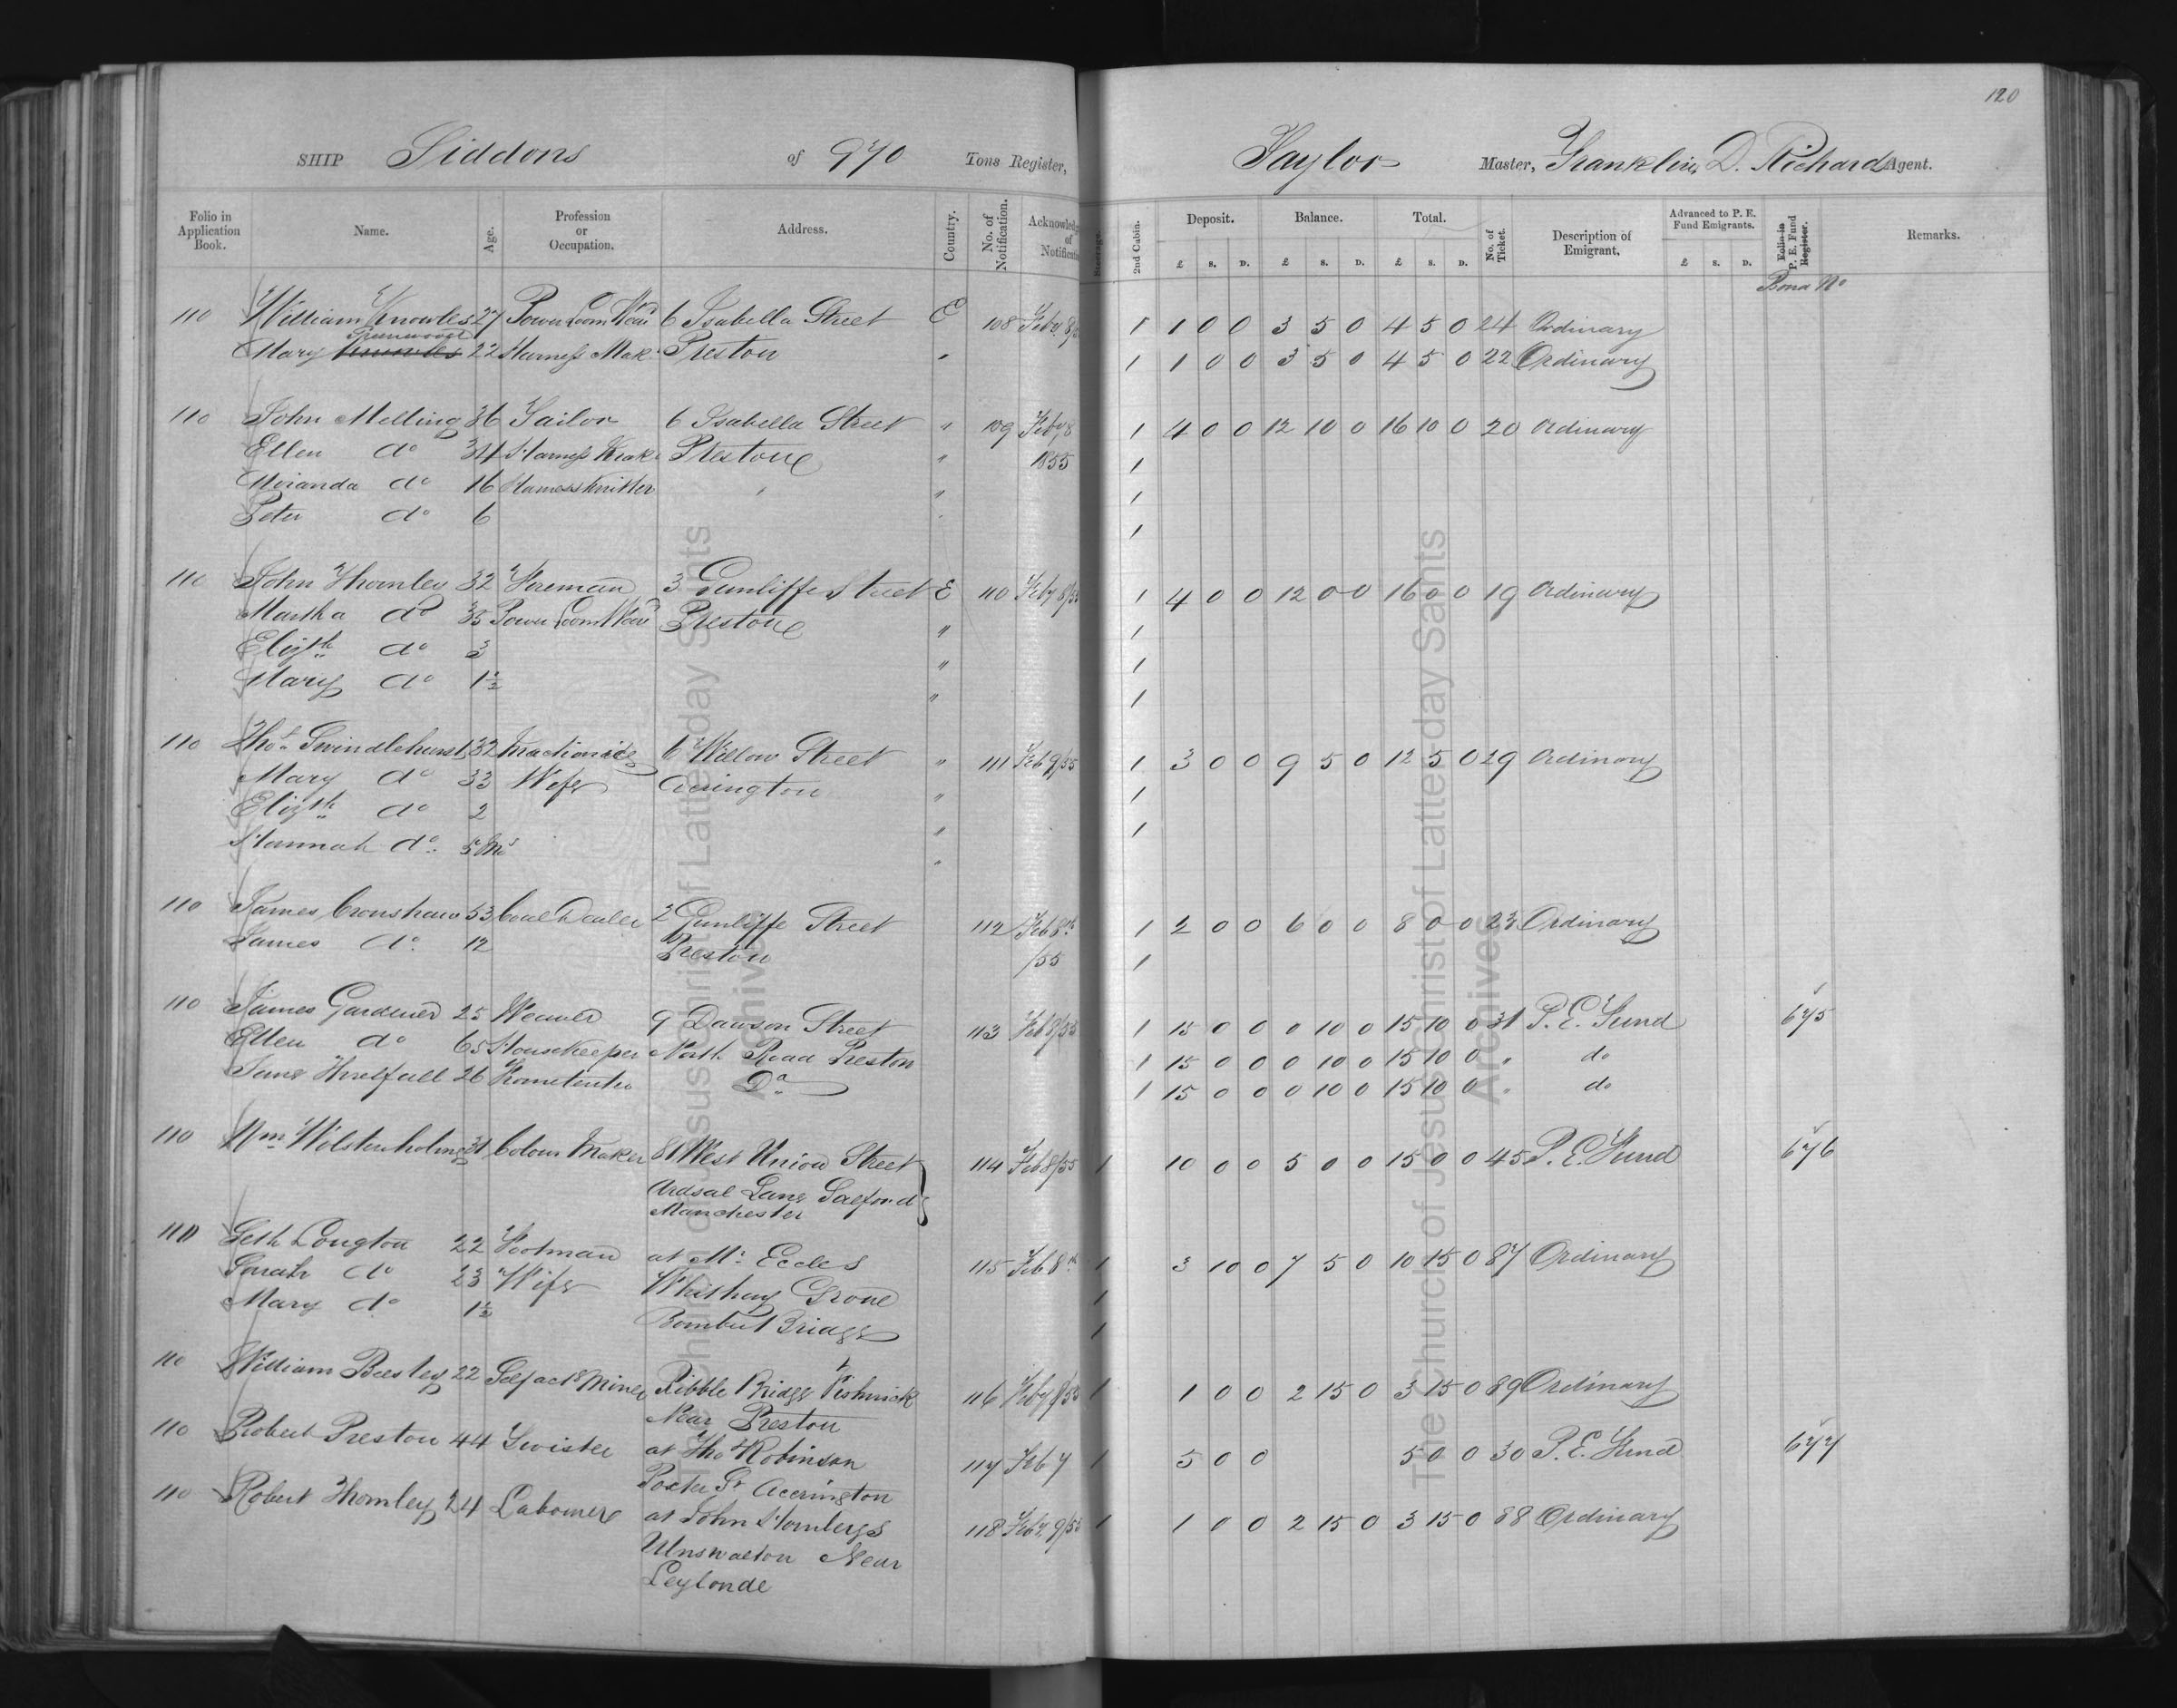 120
SHIP Siddons of 970 Tons Register, Taylor Master, Franklin D. Richards Agent.
Folio in Application Book. Name. Age. Profession or Occupation. Address. Country. No. of Notification. Acknowledg of Notificatio Steerage. 2nd Cabin. Deposit. Balance. Total. No. of Ticket. Description of Emigrant. Advanced to P. E. Fund Emigrants. Folio in P. E. Fund Register. Remarks.
£ S. D. £ S. D. £ S. D. £ S. D.
Bond No
110 William Knowles 27 Power Loom Wea 6 Isabella Street E 108 Feby 8/5 1 1 0 0 3 5 0 4 5 0 24 Ordinary
Greenwood
Mary Knowles 22 Harness Mak Preston " 1 1 0 0 3 5 0 4 5 0 22 Ordinary
110 John Melling 36 Tailor 6 Isabella Street " 109 Feby 8 1 4 0 0 12 10 0 16 10 0 20 Ordinary
Ellen do 34 Harness Mak Preston " 1855 1
Miranda do 16 Harness Knitter " " 1
Peter do 6 1
110 John Thornley 32 Foreman 3 Cunliffe Street E 110 Feby 8/55 1 4 0 0 12 0 0 16 0 0 19 Ordinary
Martha do 35 Power Loom Wea Preston " 1
Elizth do 3 " 1
Mary do 1½ " 1
110 Thos Swindlehurst 32 6 Willow Street " 111 Feb 9/55 1 3 0 0 9 5 0 12 5 0 29 Ordinary
Mary do 33 Wife Accrington " 1
Elizth do 2 " 1
Hannah do 5 Mos "
110 James Cronshaw 53 Coal Dealer 2 Cunliffe Street 112 Feb 8th 1 2 0 0 6 0 0 8 0 0 23 Ordinary
James do 12 Preston /55 1
110 James Gardener 25 Weaver 9 Dawson Street 113 Feb 8/55 1 15 0 0 0 10 0 15 10 0 31 P. E. Fund 675
Ellen do 65 Housekeeper North Road Preston 1 15 0 0 0 10 0 15 10 0 " do
Jane Threlfall 26 Do 1 15 0 0 0 10 0 15 10 0 " do
110 Wm Wolstenholme 31 Colour Maker 81 West Union Street 114 Feb 8/55 1 10 0 0 5 0 0 15 0 0 45 P. E. Fund 676
Ordsal Lane Salford
Manchester
110 Seth Longton 22 Footman at Mr Eccles 115 Feb 8th 1 3 10 0 7 5 0 10 15 0 87 Ordinary
Sarah do 23 Wife Grove 1
Mary do 1½ Bridge 1
110 William Beesley 22 Self act Miner Ribble Bridge Fishwick 116 Feby 8/55 1 1 0 0 2 15 0 3 15 0 89 Ordinary
Near Preston
110 Robert Preston 44 Twister at Thos Robinson 117 Feb 7 1 5 0 0 5 0 0 30 P. E. Fund 677
St Accrington
110 Robert Thornley 24 Labourer at John 118 Feby 9/55 1 1 0 0 2 15 0 3 15 0 88 Ordinary
Near
Leylonde
The Church of Jesus Christ of Latter-day Saints
Archives
The Church of Jesus Christ of Latter-day Saints
Archives